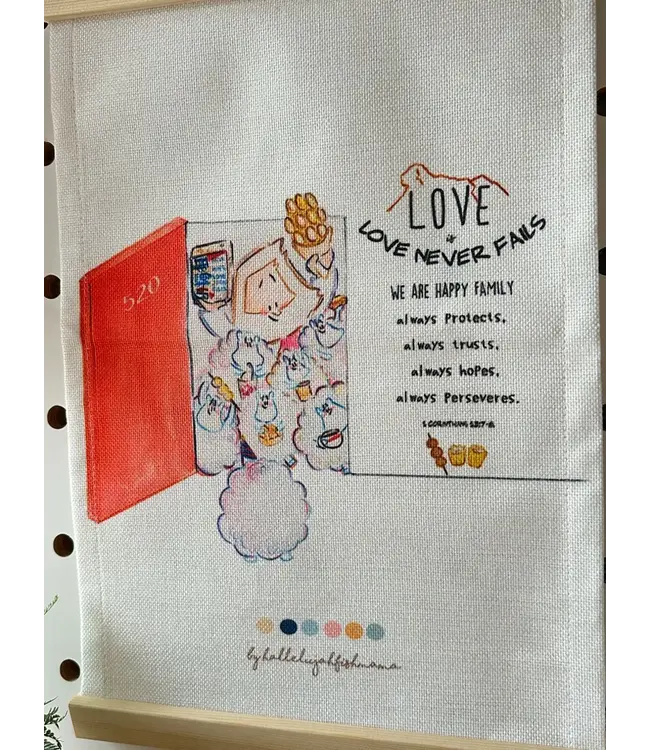 520
LOVE
LOVE NEVER FAILS
WE ARE HAPPY FAMILY
always Protects,
always trusts,
always hopes,
always Perseveres.
1 CORINTHIANS 13:7-8
by hallelujahfishmama